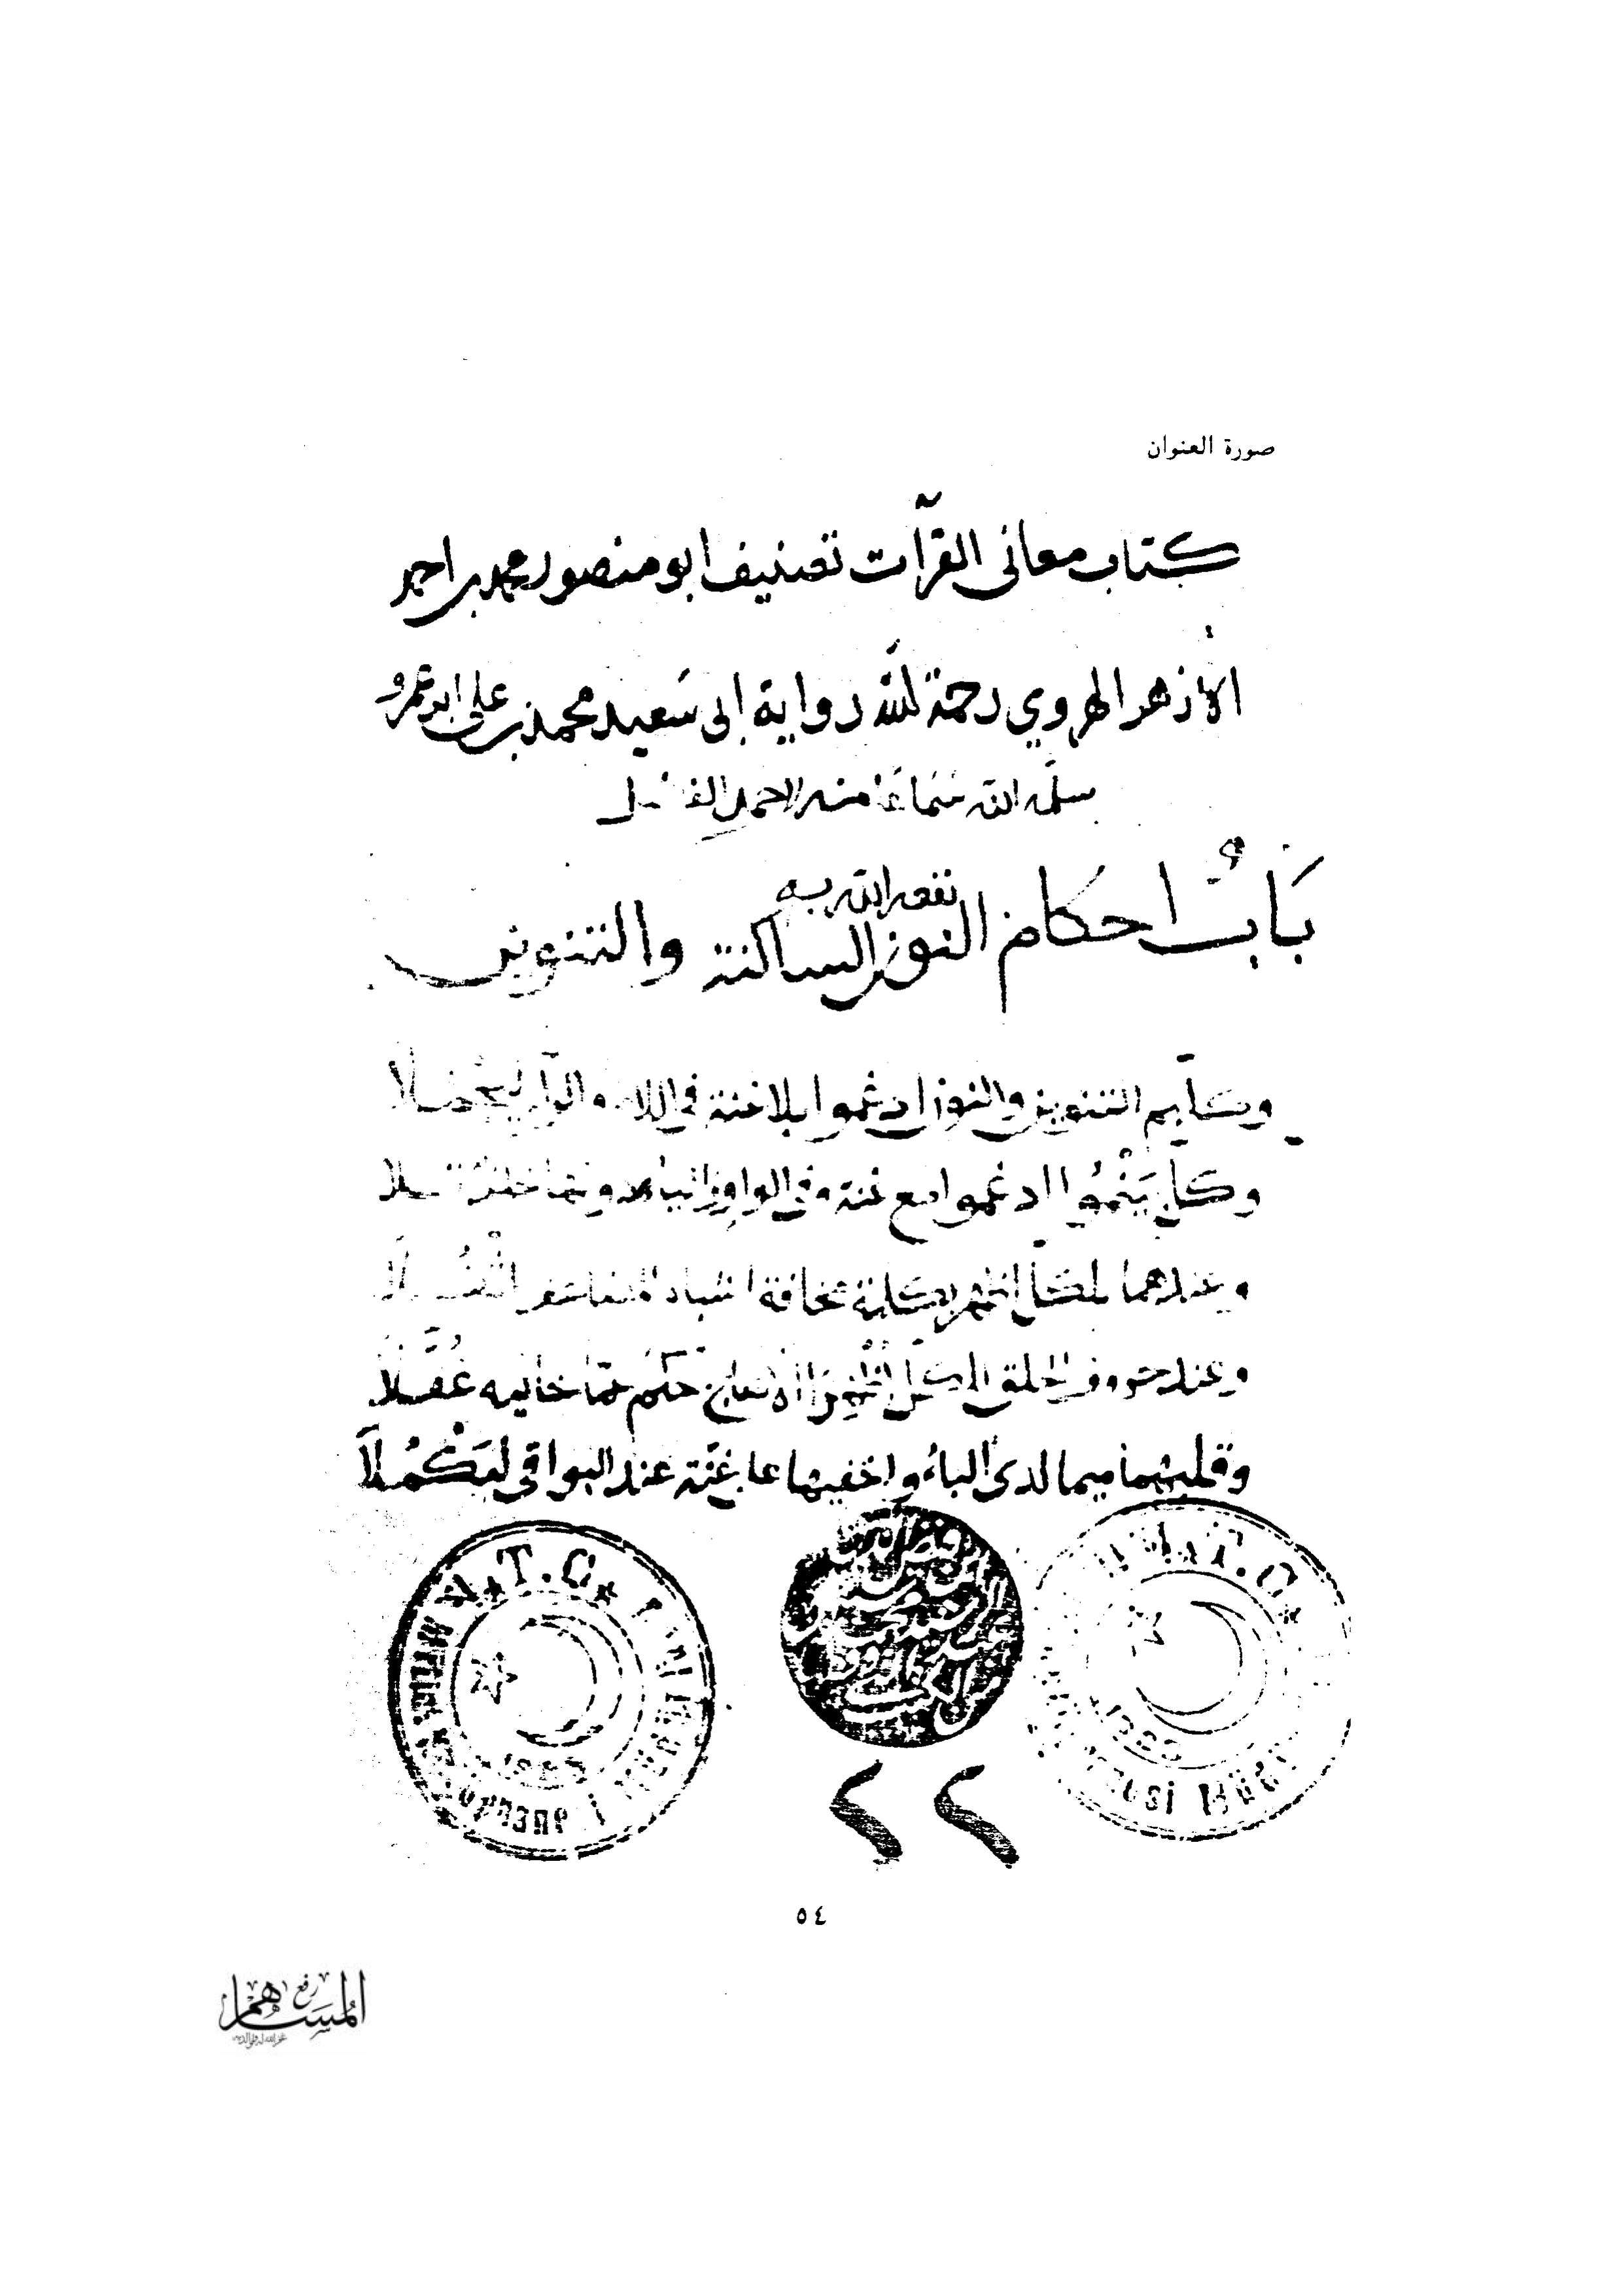 صورة العنوان
كتاب معانى القرآت تصنيف ابو منصور محمد بن احمد
الأزهر الهروي رحمة لله رواية ابى سَعيد محمد بن على ابو عمرو
سلمه الله سَمَاعًا منه لاحمد بن الفضل
نفعه الله به
بَابُ احكام النون الساكنة والتنوين
وكلّهم التنوين والنون ادغموا بلا غنة في اللام والرا ليجملا
وكلّ بيَنْمُوا ادغموا مع غنة وفي الواو واليا دونها خلف تلا
وعندهما للكلّ اظهر بكلمة مخافة اشباه المضاعف اثقَلا
وعند حروف الحلق للكل اظهرا الا هاج حكم عمّ خاليه غُفّلا
وقلبهما ميما لدى البا واخفيها عا غنّة عند البواقى ليَكْمُلَا
T.C.
T.C.
٢٢
٥٤
رفع
المساهم
غفر الله له ولوالديه